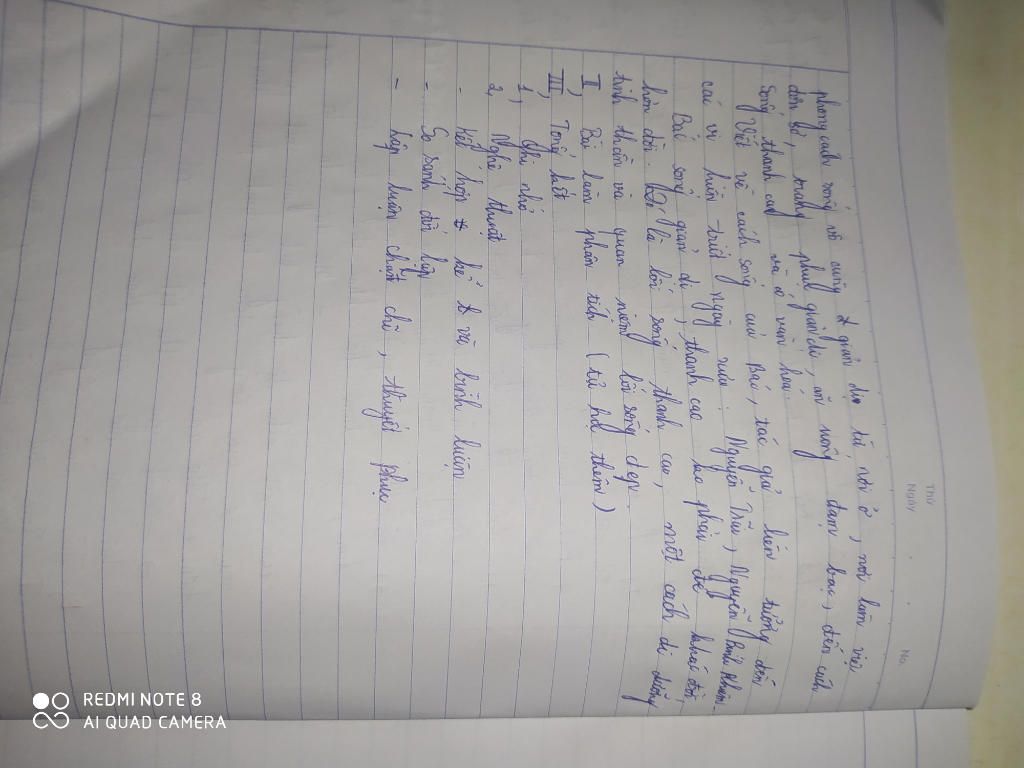 Thứ
Ngày No.
phong cách sống vô cùng giản dị: từ nơi ở, nơi làm việc
đơn sơ, trang phục giản dị, ăn uống đạm bạc, đến cách
sống thanh cao và có văn hoá.
Viết về cách sống của Bác, tác giả liên tưởng đến
các vị hiền triết ngày xưa: Nguyễn Trãi, Nguyễn Bỉnh Khiêm.
Bác sống giản dị, thanh cao ko phải để khác đời,
hơn đời. Đó là lối sống thanh cao, một cách di dưỡng
tinh thần và quan niệm lối sống đẹp.
II, Bài làm phân tích (tự học thêm)
III, Tổng kết
1, Ghi nhớ
2, Nghệ thuật
- Kết hợp kể và bình luận
- So sánh đối lập
- Lập luận chặt chẽ, thuyết phục
REDMI NOTE 8
AI QUAD CAMERA